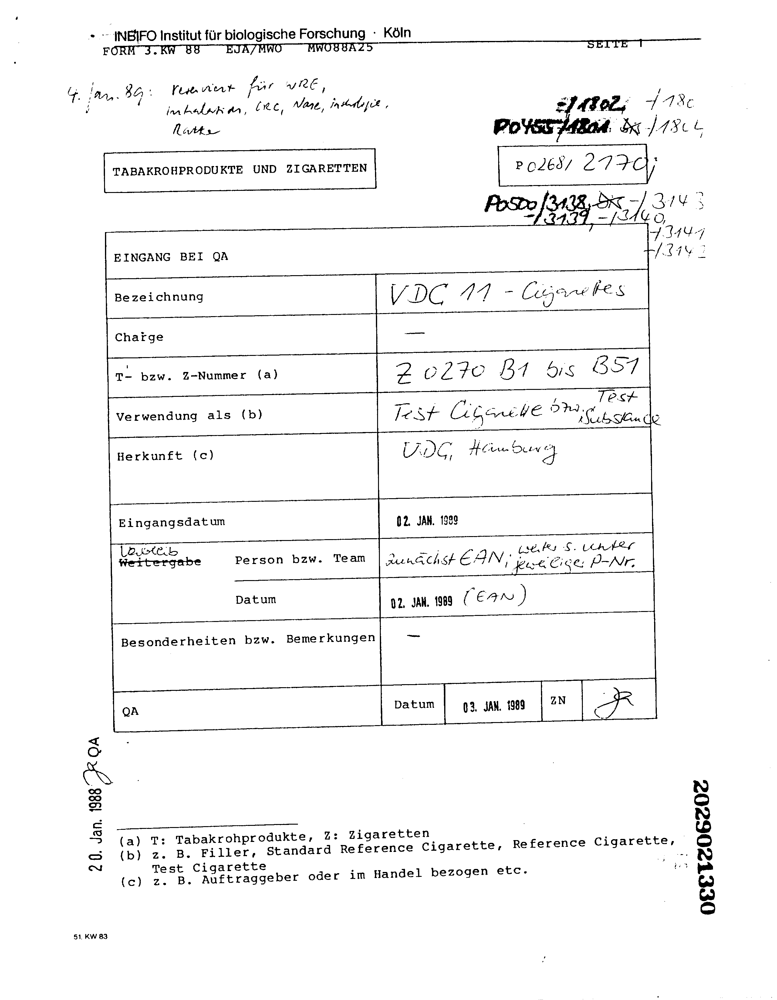 INBIFO Institut für biologische Forschung · Köln
FORM 3.KW 88 EJA/MWO MWO88A25 SEITE 1
4. Jan. 89: reserviert für
inhalation, CRC, Nase,
-/1802; -/180
P0455/1801
TABAKROHPRODUKTE UND ZIGARETTEN
P 0268/ 2170;
P0500/3138, -/3143
-/3139, -/3140,
-/3141
-/3142
EINGANG BEI QA
Bezeichnung VDC 11 - Cigarettes
Charge —
T- bzw. Z-Nummer (a) Z 0270 B1 bis B51
Verwendung als (b) Test Cigarette bzw. Test
Substance
Herkunft (c) Hamburg
Eingangsdatum 02. JAN. 1989
Verbleib
Weitergabe Person bzw. Team zunächst EAN; weiter s. unter
jeweiliger P-Nr.
Datum 02. JAN. 1989 (EAN)
Besonderheiten bzw. Bemerkungen —
QA Datum 03. JAN. 1989 ZN
20. Jan. 1988 QA
(a) T: Tabakrohprodukte, Z: Zigaretten
(b) z. B. Filler, Standard Reference Cigarette, Reference Cigarette,
Test Cigarette
(c) z. B. Auftraggeber oder im Handel bezogen etc.
2029021330
51. KW 83